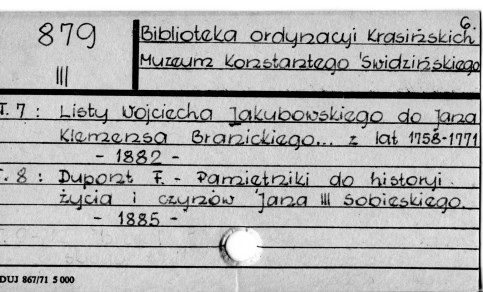 6.
879
III
Biblioteka ordynacyi Krasińskich
Muzeum Konstantego Świdzińskiego
T. 7 : Listy Wojciecha Jakubowskiego do Jana
Klemensa Branickiego... z lat 1758-1771
- 1882 -
T. 8 : Dupont F. - Pamiętniki do historyi
życia i czynów Jana III Sobieskiego.
- 1885 -
DUJ 867/71 5 000